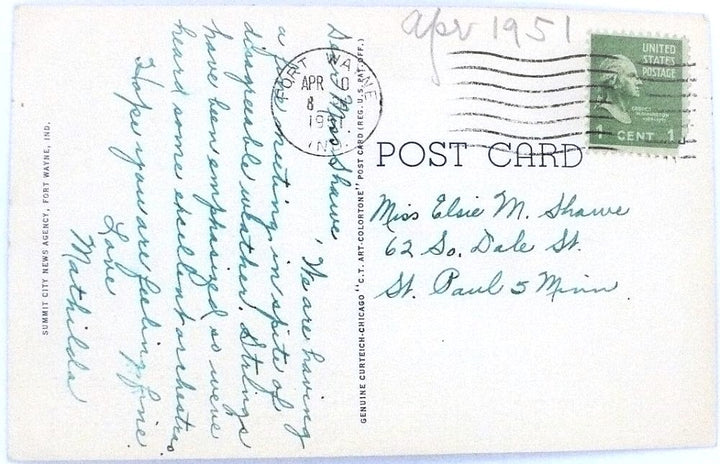 apr 1951
UNITED
STATES
POSTAGE
GEORGE
WASHINGTON
1 CENT 1
FORT WAYNE
APR 10
8
1951
IND.
POST CARD
Miss Elsie M. Shawe
62 So. Dale St.
St. Paul 5 Minn.
Dear Miss Shawe, We are having
a fine meeting in spite of
disagreeable weather. Strings
have been emphasized so we've
heard some excellent orchestras.
Hope you are feeling fine.
Love
Mathilda
GENUINE CURTEICH-CHICAGO "C.T. ART-COLORTONE" POST CARD (REG. U.S. PAT. OFF.)
SUMMIT CITY NEWS AGENCY, FORT WAYNE, IND.